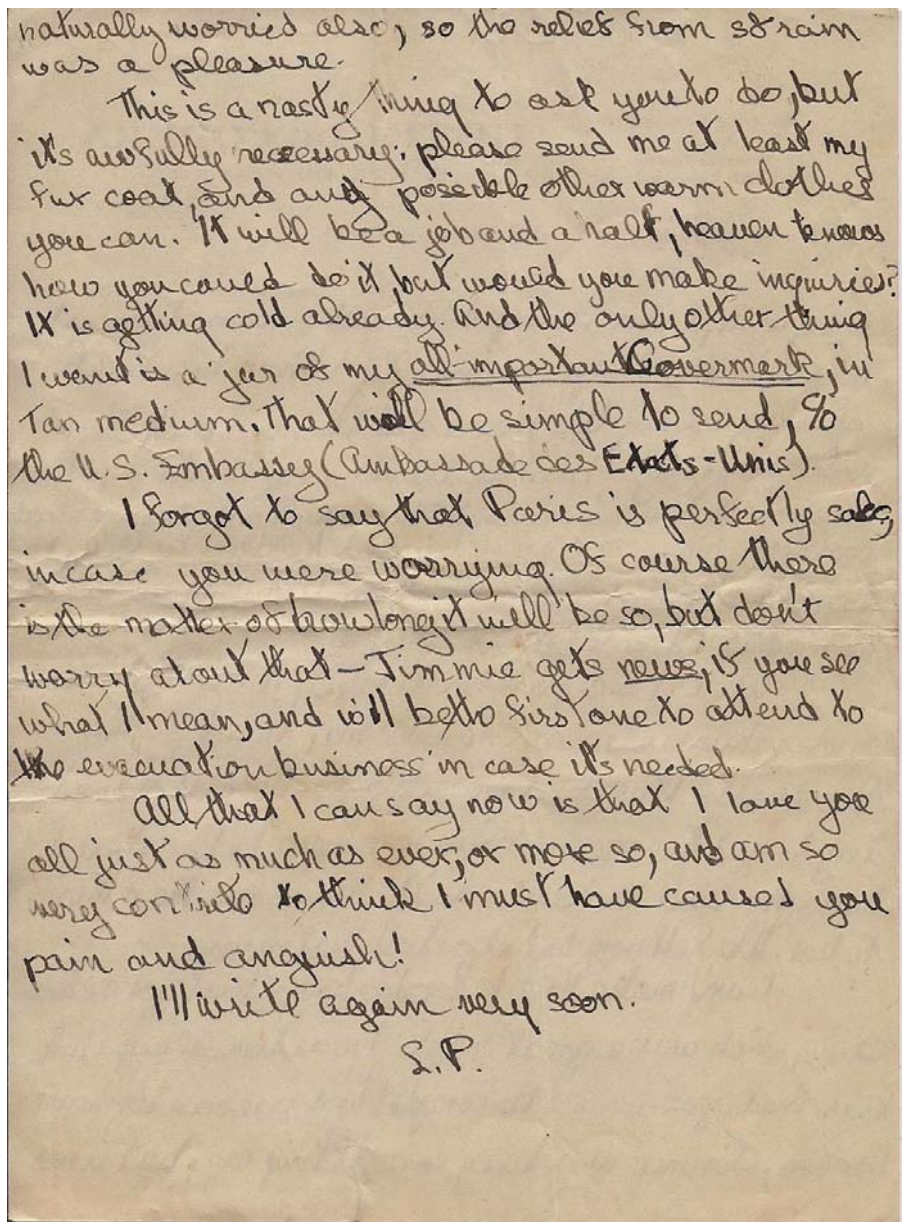 naturally worried also, so the relief from strain
was a pleasure.
This is a nasty thing to ask you to do, but
it's awfully necessary: please send me at least my
fur coat, and any possible other warm clothes
you can. It will be a job and a half, heaven knows
how you could do it, but would you make inquiries?
It is getting cold already. And the only other thing
I want is a jar of my all-important Covermark, in
Tan medium. That will be simple to send, c/o
the U.S. Embassy (Ambassade des Etats-Unis).
I forgot to say that Paris is perfectly safe,
in case you were worrying. Of course there
is the matter of how long it will be so, but don't
worry about that – Jimmie gets news, if you see
what I mean, and will be the first one to attend to
the evacuation business in case it's needed.
All that I can say now is that I love you
all just as much as ever, or more so, and am so
very contrite to think I must have caused you
pain and anguish!
I'll write again very soon.
S.P.